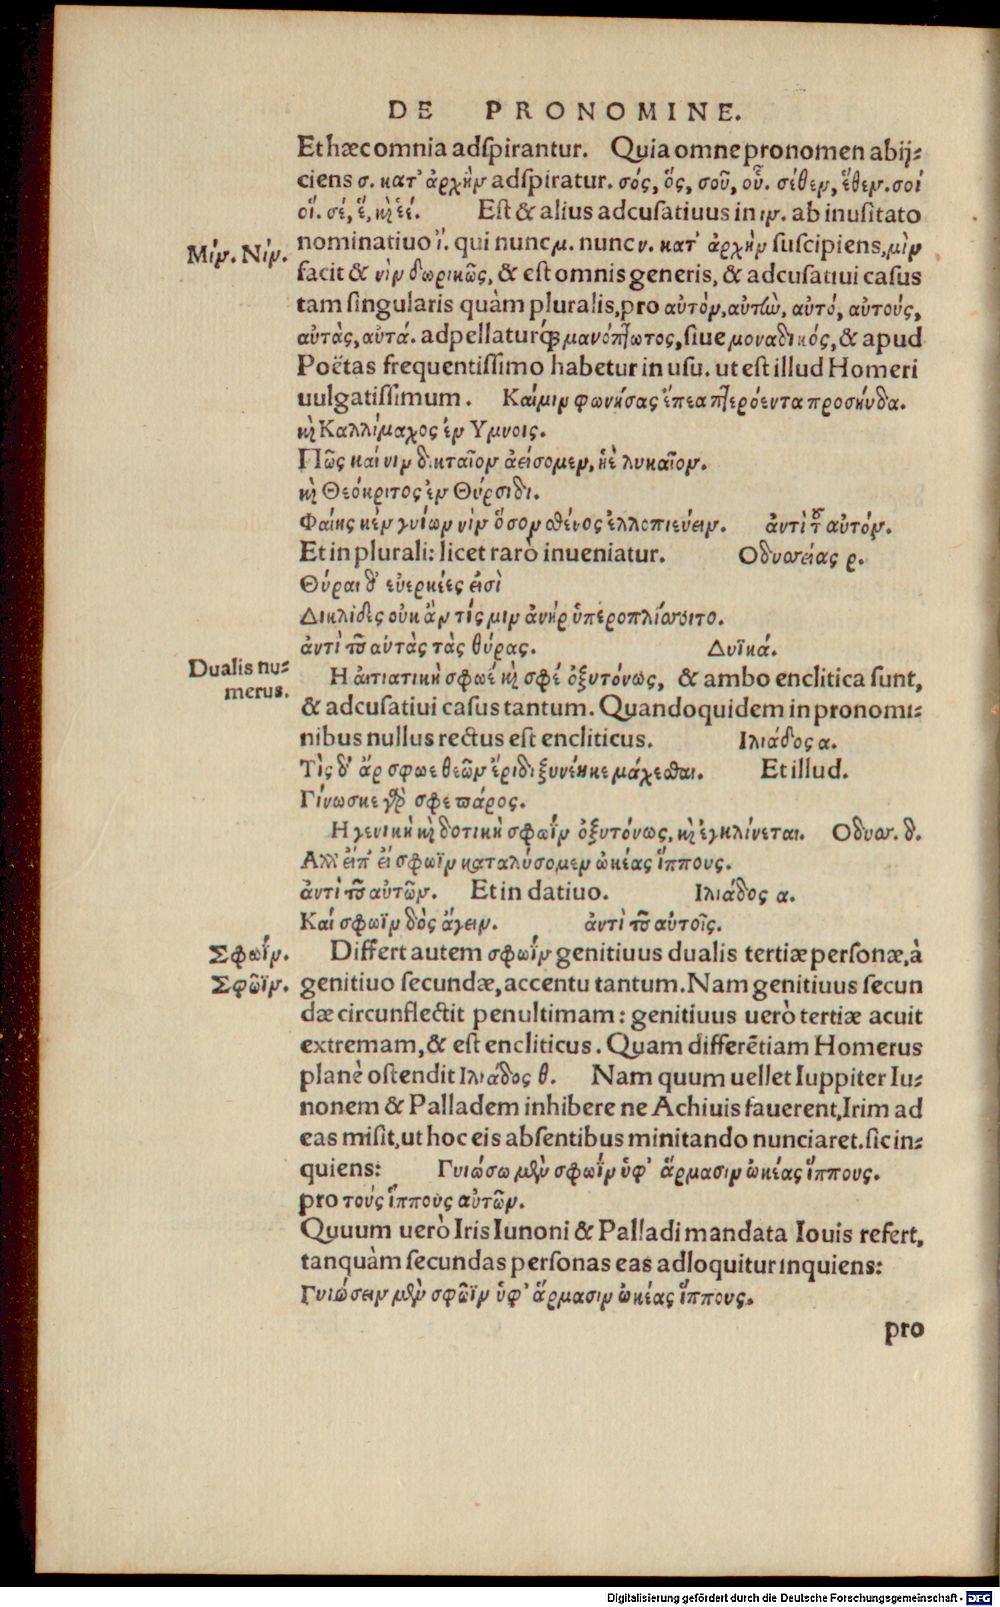 DE PRONOMINE.
Et hæc omnia adspirantur. Quia omne pronomen abij⸗
ciens σ. κατ' ἀρχὴν adspiratur. σός, ὅς, σοῦ, οὗ. σέθεν, ἕθεν. σοί
οἷ. σέ, ἕ, κὶ ἑέ. Est & alius adcusatiuus in ιν. ab inusitato
Μίν. Νίν.
nominatiuo ἵ. qui nunc μ. nunc ν. κατ' ἀρχὴν suscipiens, μὶν
facit & νὶν δωρικῶς, & est omnis generis, & adcusatiui casus
tam singularis quàm pluralis, pro αὐτὸν, αὐτὼ, αὐτό, αὐτούς,
αὐτὰς, αὐτά. adpellaturq́ꝫ μανόπτωτος, siue μοναδικός, & apud
Poëtas frequentissimo habetur in usu. ut est illud Homeri
uulgatissimum. Καίμιν φωνήσας ἔπεα πτερόεντα προσηύδα.
κὶ Καλλίμαχος ἐν Υμνοις.
Πῶς καί νιν δικταῖον ἀείσομεν, ἠὲ λυκαῖον.
κὶ Θεόκριτος ἐν Θύρσιδι.
Φαίης κὲν γυίων νὶν ὅσον σθένος ἐλλοπιεύειν. ἀντὶ τ̃ αὐτόν.
Et in plurali: licet rarò inueniatur. Οδυσσείας ρ.
Θύραι δ' εὐερκέες εἰσὶ
Δικλίδες οὐκ ἂν τίς μιν ἀνὴρ ὑπεροπλίσσοιτο.
ἀντὶ τοῦ αὐτὰς τὰς θύρας. Δυϊκά.
Dualis nu⸗
merus.
Η ἀιτιατικὴ σφωέ κὶ σφέ ὀξυτόνως, & ambo enclitica sunt,
& adcusatiui casus tantum. Quandoquidem in pronomi⸗
nibus nullus rectus est encliticus. Ιλιάδος α.
Τὶς δ' ἄρ σφωε θεῶν ἔριδι ξυνέηκε μάχεσθαι. Et illud.
Γίνωσκε γὰρ σφε πάρος.
Η γενικὴ κὶ δοτικὴ σφωΐν ὀξυτόνως, κὶ ἐγκλίνεται. Οδυσσ. δ.
Αλλ' εἴπ' εἰ σφωϊν καταλύσομεν ὠκέας ἵππους.
ἀντὶ τοῦ αὐτῶν. Et in datiuo. Ιλιάδος α.
Καί σφωϊν δὸς ἄγειν. ἀντὶ τοῦ αὐτοῖς.
Σφωΐν.
Σφῶϊν.
Differt autem σφωΐν genitiuus dualis tertiæ personæ, à
genitiuo secundæ, accentu tantum. Nam genitiuus secun
dæ circunflectit penultimam: genitiuus uerò tertiæ acuit
extremam, & est encliticus. Quam differẽtiam Homerus
planè ostendit Ιλιάδος θ. Nam quum uellet Iuppiter Iu⸗
nonem & Palladem inhibere ne Achiuis fauerent, Irim ad
eas misit, ut hoc eis absentibus minitando nunciaret. sic in⸗
quiens: Γυιώσω μὲν σφωΐν ὑφ' ἅρμασιν ὠκέας ἵππους.
pro τούς ἵππους αὐτῶν.
Quuum uerò Iris Iunoni & Palladi mandata Iouis refert,
tanquàm secundas personas eas adloquitur inquiens:
Γυιώσειν μὲν σφῶϊν ὑφ' ἅρμασιν ὠκέας ἵππους.
pro
Digitalisierung gefördert durch die Deutsche Forschungsgemeinschaft - DFG